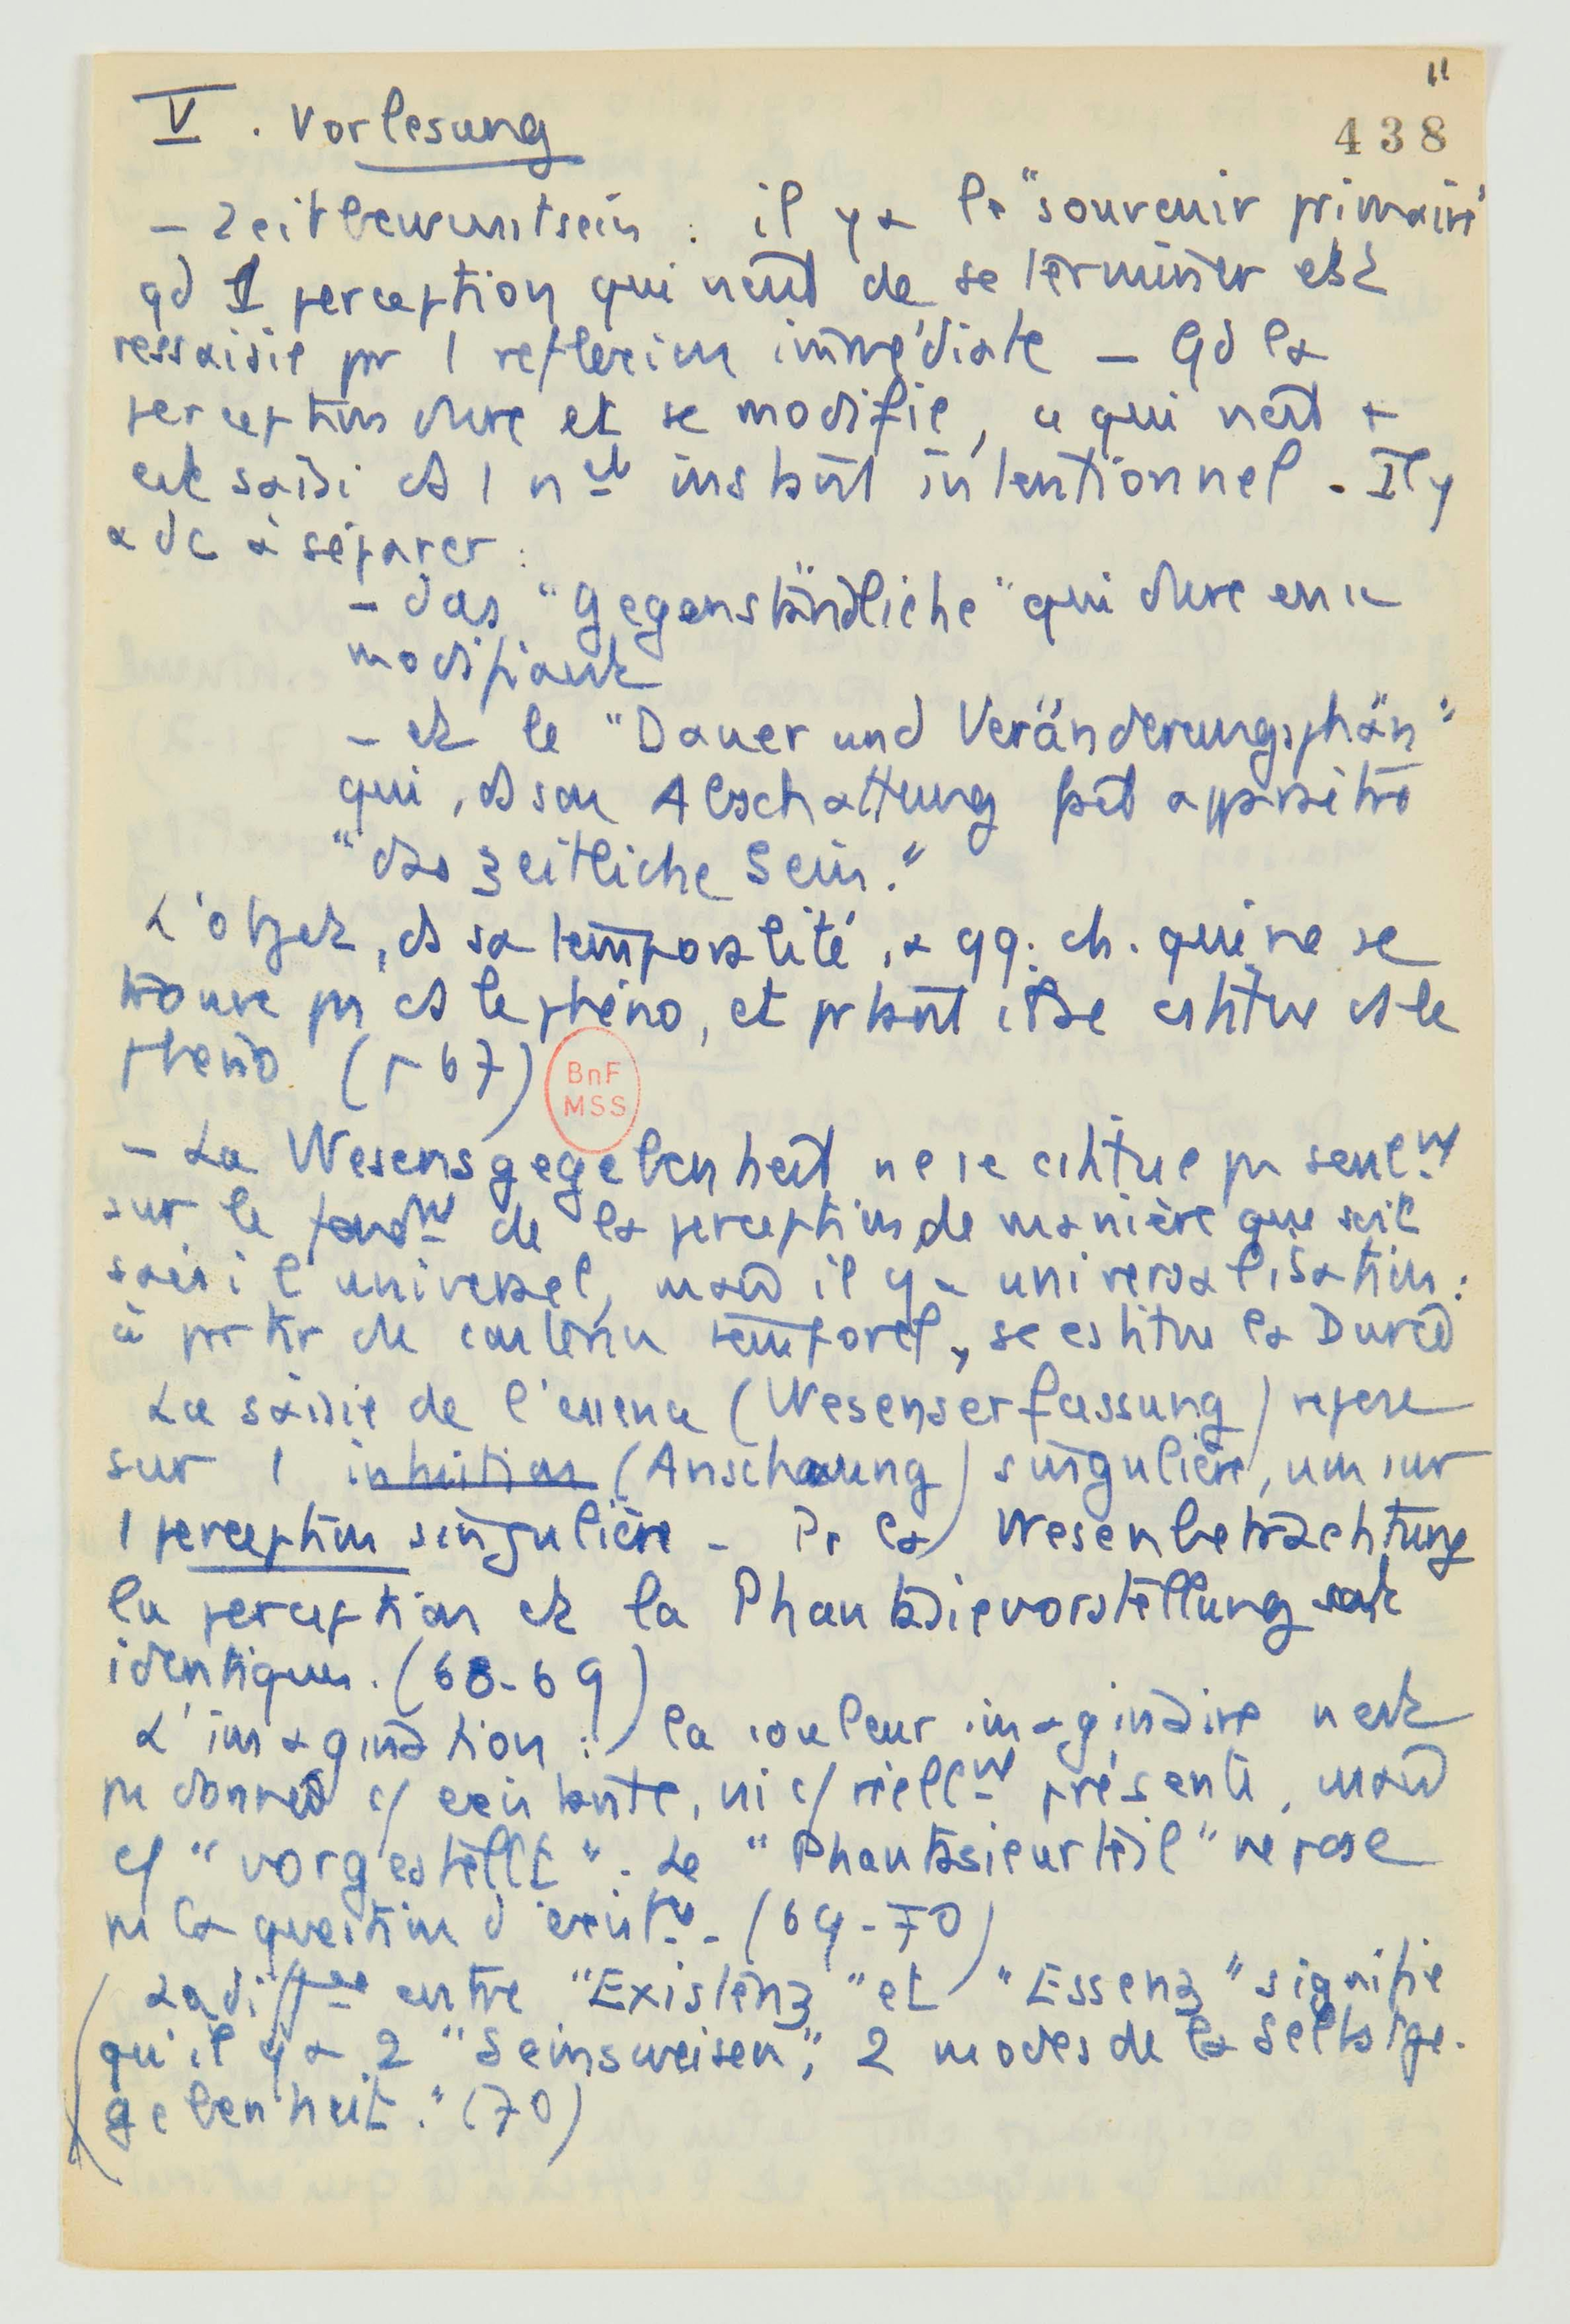 11
V. Vorlesung
438
– Zeitbewusstsein : il y a le "souvenir primaire"
qd 1 perception qui vient de se terminer est
ressaisie par 1 reflexion immédiate – Qd la
perception dure et se modifie, ce qui vient
est saisi ds 1 instant intentionnel. Il y
a dc à séparer :
– das "Gegenständliche" qui dure en se
modifiant
– et le "Dauer und Veränderungsphän"
qui, ds son Abschattung fait apparaître
"das zeitliche Sein."
L'objet, ds sa temporalité, a qq. ch. qui ne se
trouve pas ds le phéno, et pourtant il se cstitue ds le
phéno (p 67)
BnF
MSS
– La Wesensgegebenheit ne se cstitue pas seulmt
sur le fondmt de la perception de manière que soit
saisi l'universel, mais il y a universalisation :
à partir du contenu temporel, se cstitue la Durée
La saisie de l'essence (Wesenserfassung) repose
sur 1 intuition (Anschauung) singulière, non sur
1 perception singulière – Pr la Wesenbetrachtung
la perception et la Phantasievorstellung sont
identiques. (68-69)
L'imagination : la couleur imaginaire n'est
pas donnée c/ existante, ni c/ réellmt présente, mais
c/ "vorgestellt". Le "Phantasieurteil" ne pose
pas la question d'existce. (69-70)
La diffce entre "Existenz" et "Essenz" signifie
qu'il y a 2 "Seinsweisen", 2 modes de la Selbstge-
gebenheit." (70)